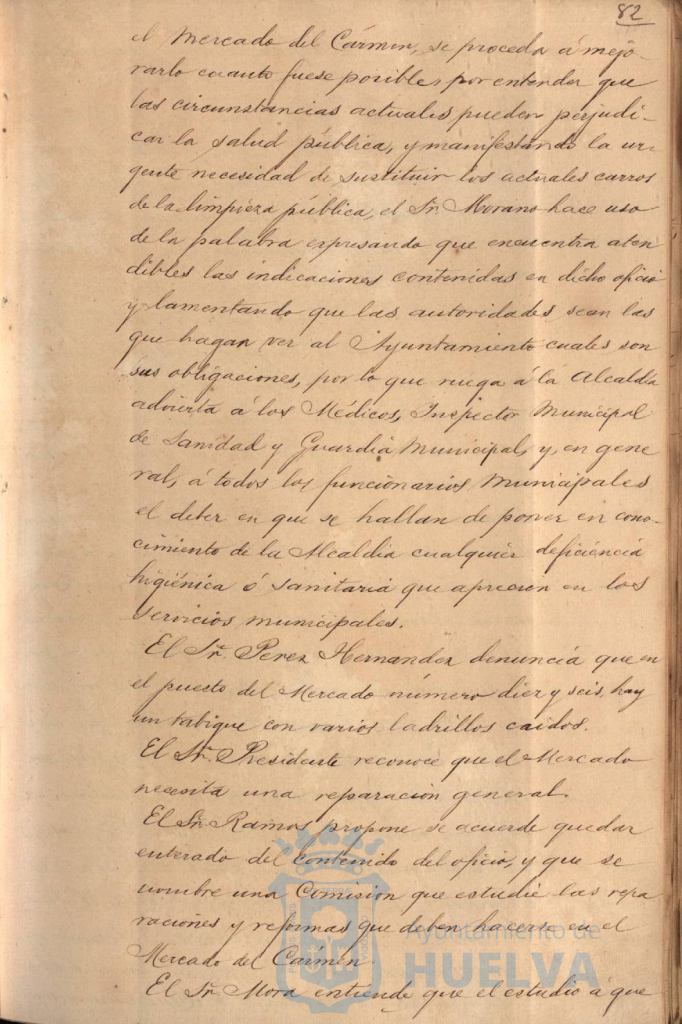 82
el Mercado del Cármen, se proceda á mejo-
rarlo cuanto fuese posible, por entender que
las circunstancias actuales pueden perjudi-
car la salud pública, y manifestando la ur-
gente necesidad de sustituir los actuales carros
de la limpieza pública, el Sr. Morano hace uso
de la palabra expresando que encuentra aten
dibles las indicaciones contenidas en dicho oficio
y lamentando que las autoridades sean las
que hagan ver al Ayuntamiento cuales son
sus obligaciones, por lo que ruega á la Alcaldía
advierta á los Médicos, Inspector Municipal
de Sanidad y Guardia Municipal, y, en gene
ral, á todos los funcionarios Municipales
el deber en que se hallan de poner en cono-
cimiento de la Alcaldía cualquier deficiencia
higiénica ó sanitaria que aprecien en los
servicios municipales.
El Sr. Perez Hernandez denuncia que en
el puesto del Mercado número diez y seis, hay
un tabique con varios ladrillos caidos.
El Sr. Presidente reconoce que el Mercado
necesita una reparación general.
El Sr. Ramos propone se acuerde quedar
enterado del contenido del oficio, y que se
nombre una Comisión que estudie las repa
raciones y reformas que deben hacerse en el
Mercado del Carmen.
El Sr. Mora entiende que el estudio á que
Ayuntamiento de
HUELVA